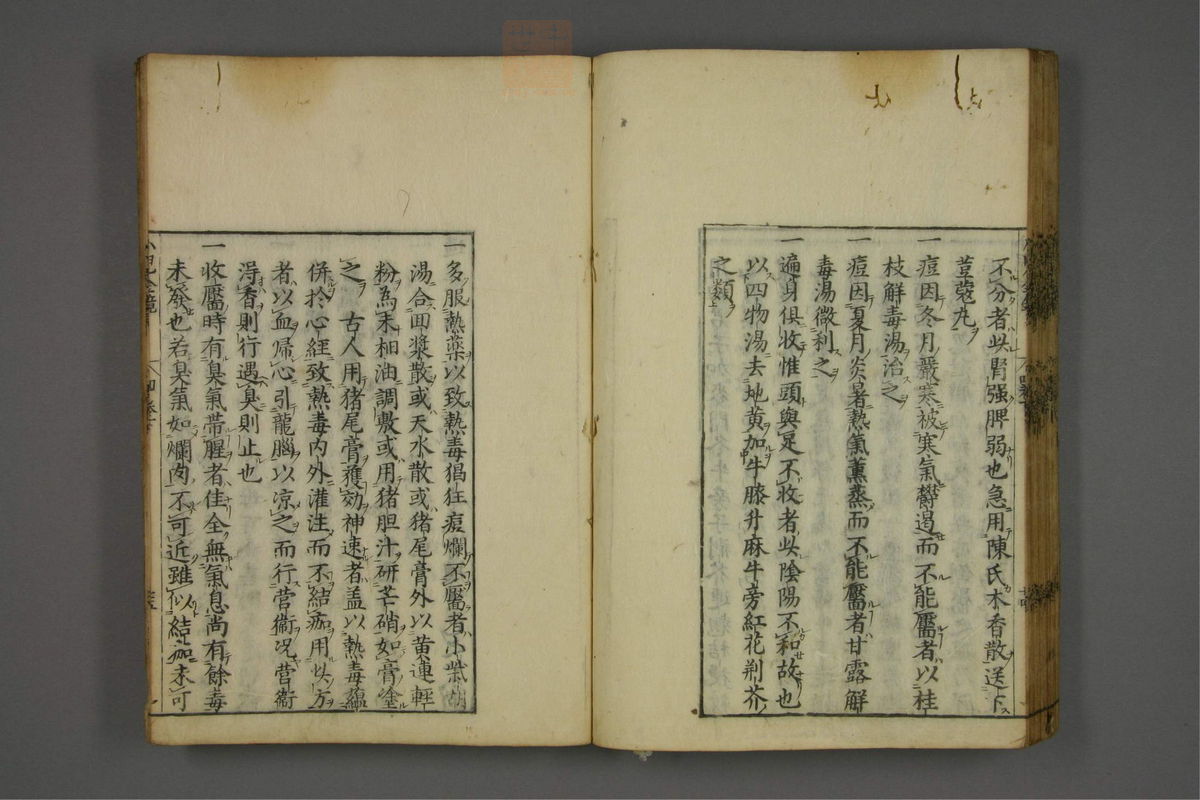 不分者此胃强脾弱也急用陳氏木香散送下
荳蔻丸
一痘因冬月嚴寒被寒氣鬱遏而不能靨者以桂
枝解毒湯治之
一痘因夏月炎暑熱氣薫蒸而不能靨者甘露解
毒湯微利之
一遍身俱收惟頭與足不收者此陰陽不和故也
以四物湯去地黄加牛膝升麻牛旁紅花荆芥
之類
一多服熱藥以致熱毒猖狂痘爛不靨者小柴胡
湯合四漿散或天水散或猪尾膏外以黄連輕
粉為末相油調敷或用猪胆汁研芒硝如膏塗
之 古人用猪尾膏獲効神速者盖以熱毒蘊
併扵心經致熱毒内外灌注而不結痂用此方
者以血歸心引龍腦以凉之而行営衞况営衞
淂香則行遇臭則止也
一收靨時有臭氣帶腥者佳全無氣息尚有餘毒
未發也若臭氣如爛肉不可近雖似結痂未可